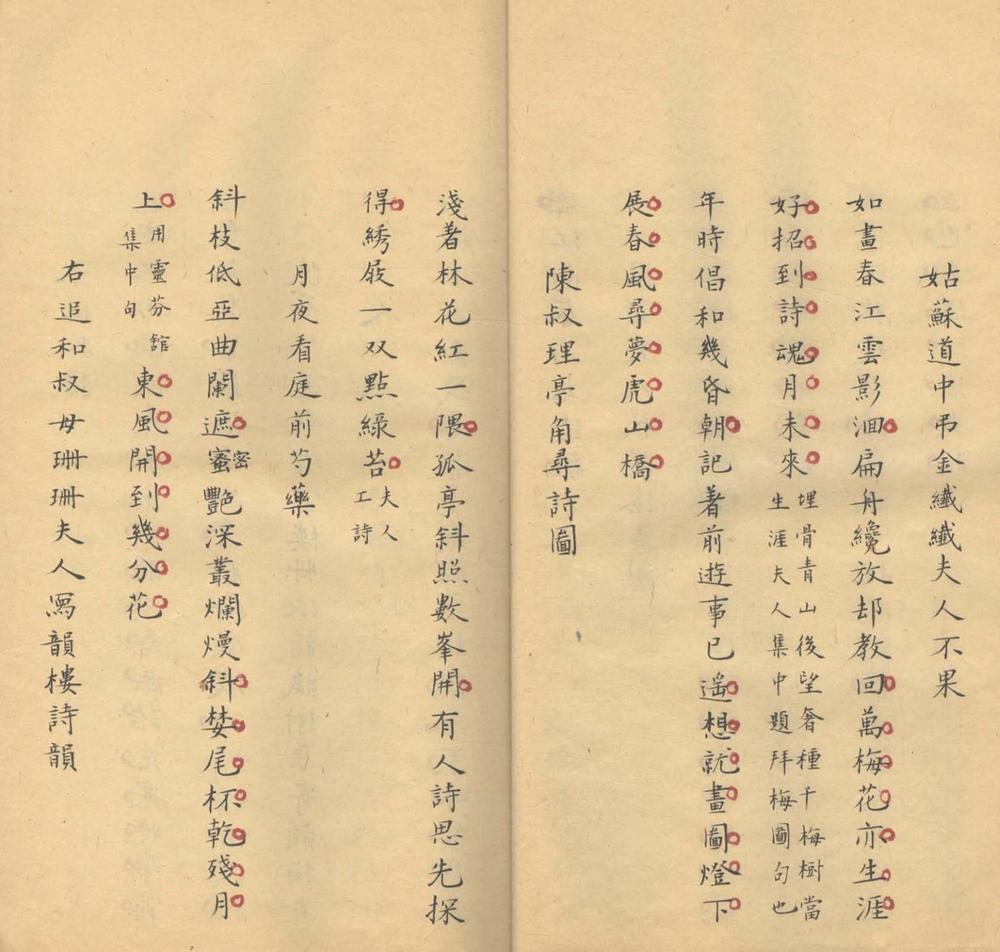 姑蘇道中弔金纖纖夫人不果
如畫春江雲影洄扁舟纔放却教回萬梅花亦生涯
好招到詩魂月未來埋骨青山後望奢種千梅樹當生涯夫人集中題拜梅圖句也
年時倡和幾昏朝記著前遊事已遥想就畫圖燈下
展春風尋夢虎山橋
陳叔理亭角尋詩圖
淺著林花紅一隈孤亭斜照數峯開有人詩思先探
得綉屐一双點綠苔夫人工詩
月夜看庭前芍藥
斜枝低亞曲闌遮蜜密艷深叢爛熳斜婪尾杯乾殘月
上用靈芬館集中句東風開到幾分花
右追和叔母珊珊夫人寫韻樓詩韻